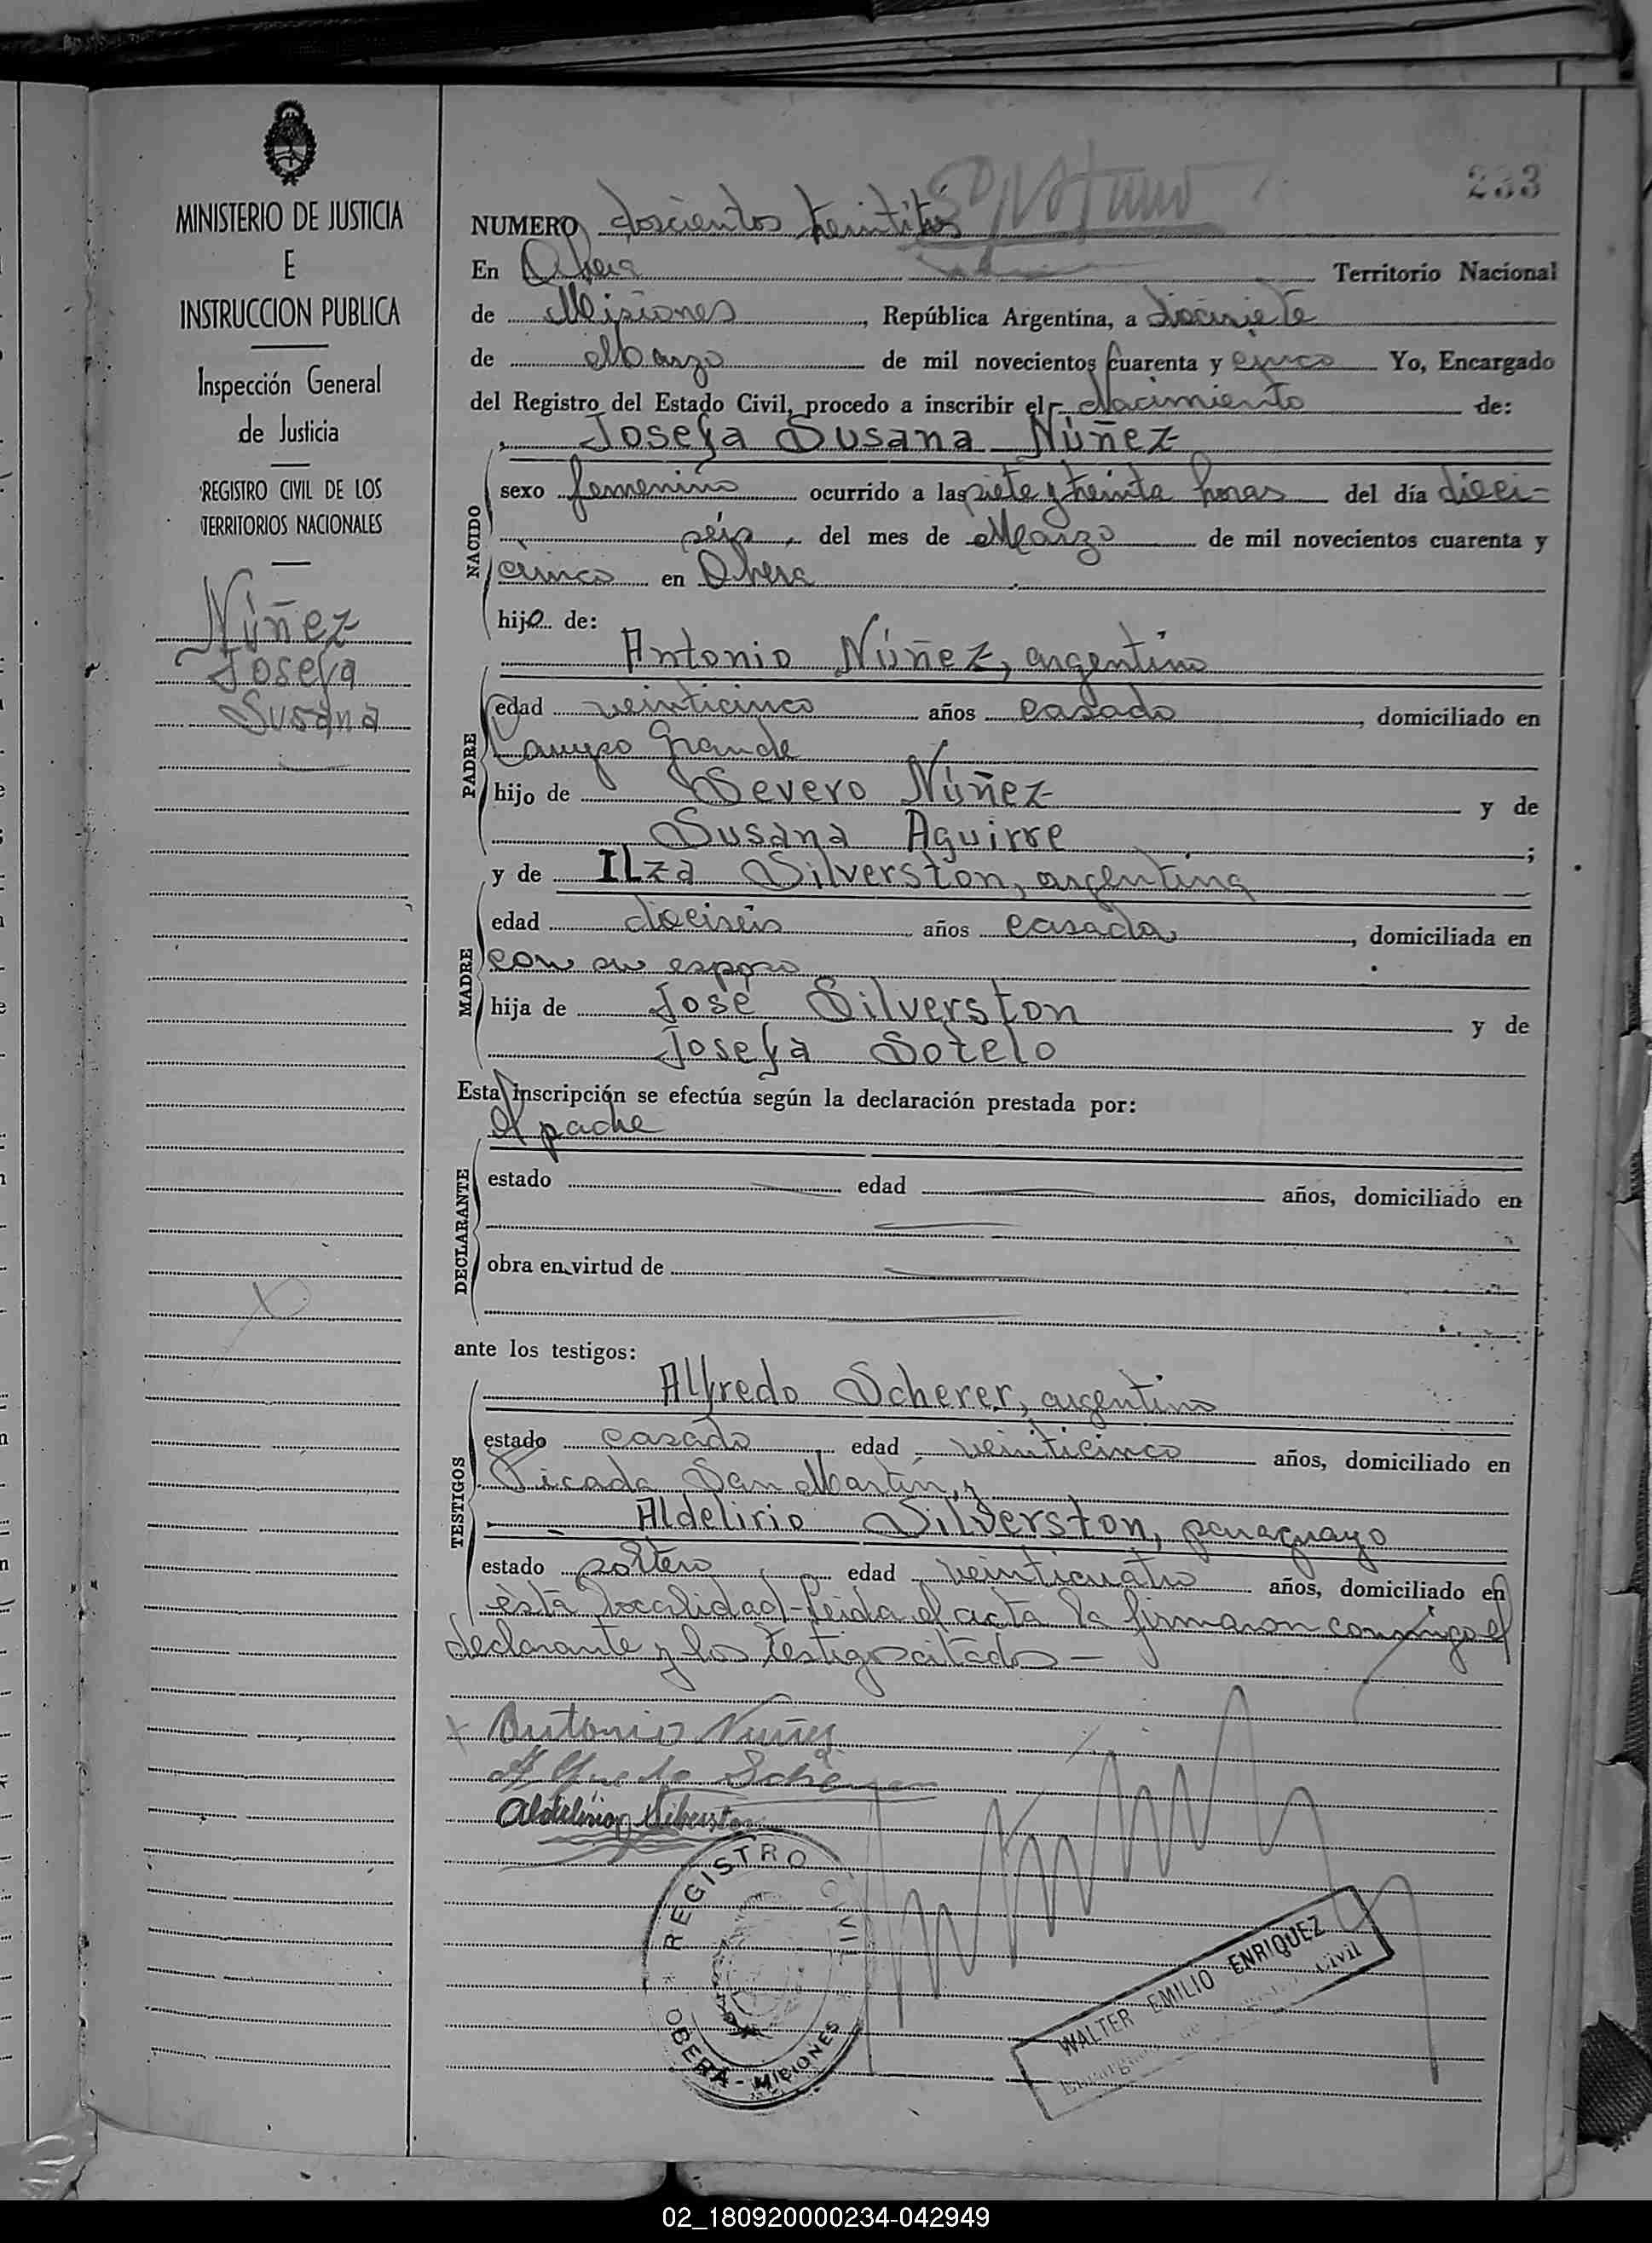 MINISTERIO DE JUSTICIA
E
INSTRUCCION PUBLICA
Inspección General
de Justicia
REGISTRO CIVIL DE LOS
TERRITORIOS NACIONALES
Núñez
Josefa
Susana
233
NUMERO doscientos treintitres
En Obera Territorio Nacional
de Misiones, República Argentina, a diecisiete
de Marzo de mil novecientos cuarenta y cinco Yo, Encargado
del Registro del Estado Civil, procedo a inscribir el Nacimiento de:
Josefa Susana Núñez
NACIDO
sexo femenino ocurrido a las siete y treinta horas del día dieci=
seis, del mes de Marzo de mil novecientos cuarenta y
cinco en Obera
hija de:
Antonio Núñez, argentino
PADRE
edad veinticinco años casado, domiciliado en
Campo Grande
hijo de Severo Núñez y de
Susana Aguirre;
y de ILza Silverston, argentina
MADRE
edad dieciseis años casada, domiciliada en
con su esposo
hija de José Silverston y de
Josefa Sotelo
Esta inscripción se efectúa según la declaración prestada por:
el padre
DECLARANTE
estado edad años, domiciliado en
obra en virtud de
ante los testigos:
Alfredo Scherer, argentino
TESTIGOS
estado casado edad veinticinco años, domiciliado en
Picada San Martín, y
Aldelirio Silverston, paraguayo
estado soltero edad veinticuatro años, domiciliado en
ésta localidad-Leida el acta la firmaron conmigo el
declarante y los testigos citados—
Antonio Nuñez
Alfredo Scherer
Aldelirio Silverston
REGISTRO CIVIL
OBERÁ - MISIONES
WALTER EMILIO ENRIQUEZ
Encargado de Registro Civil
02_180920000234-042949